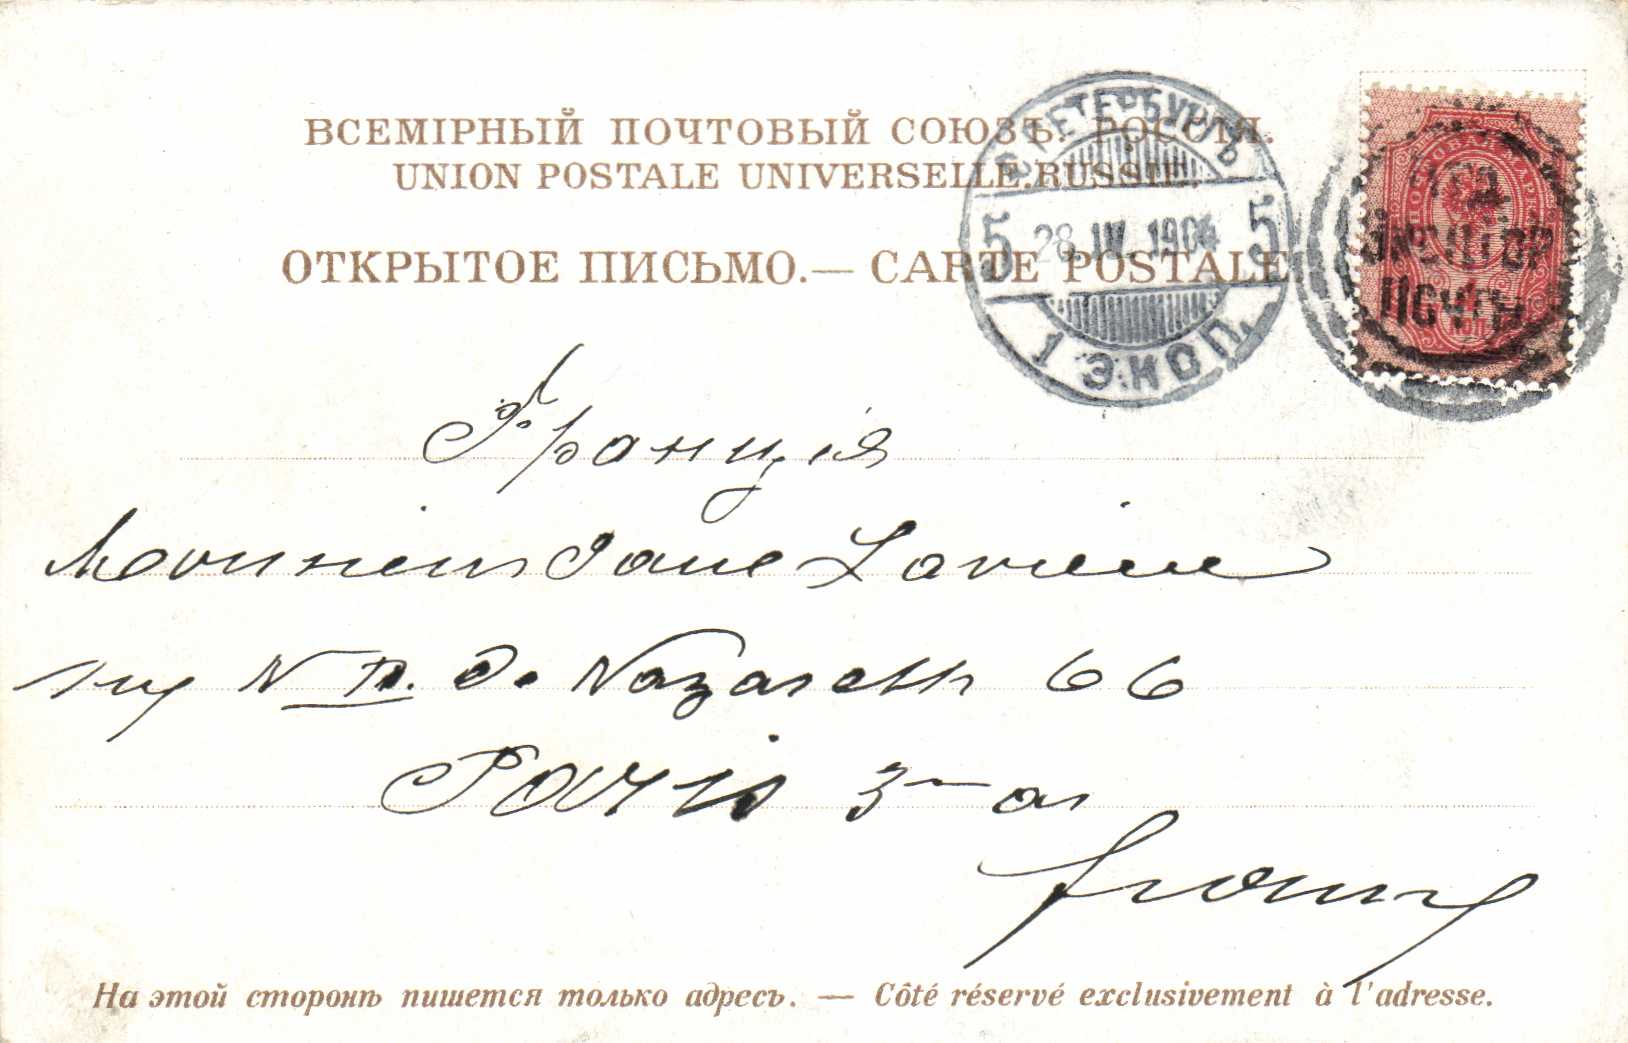 ВСЕМІРНЫЙ ПОЧТОВЫЙ СОЮЗЪ. РОССІЯ.
UNION POSTALE UNIVERSELLE. RUSSIE.
ОТКРЫТОЕ ПИСЬМО. — CARTE POSTALE
С. ПЕТЕРБУРГЪ
5 28.IV.1904 5
1 ЭКСП.
ПОЧТОВАЯ МАРКА
КОП.
Франція
Monsieur
N D. de Nazareth 66
Paris 3 ar
На этой сторонѣ пишется только адресъ. — Côté réservé exclusivement à l'adresse.